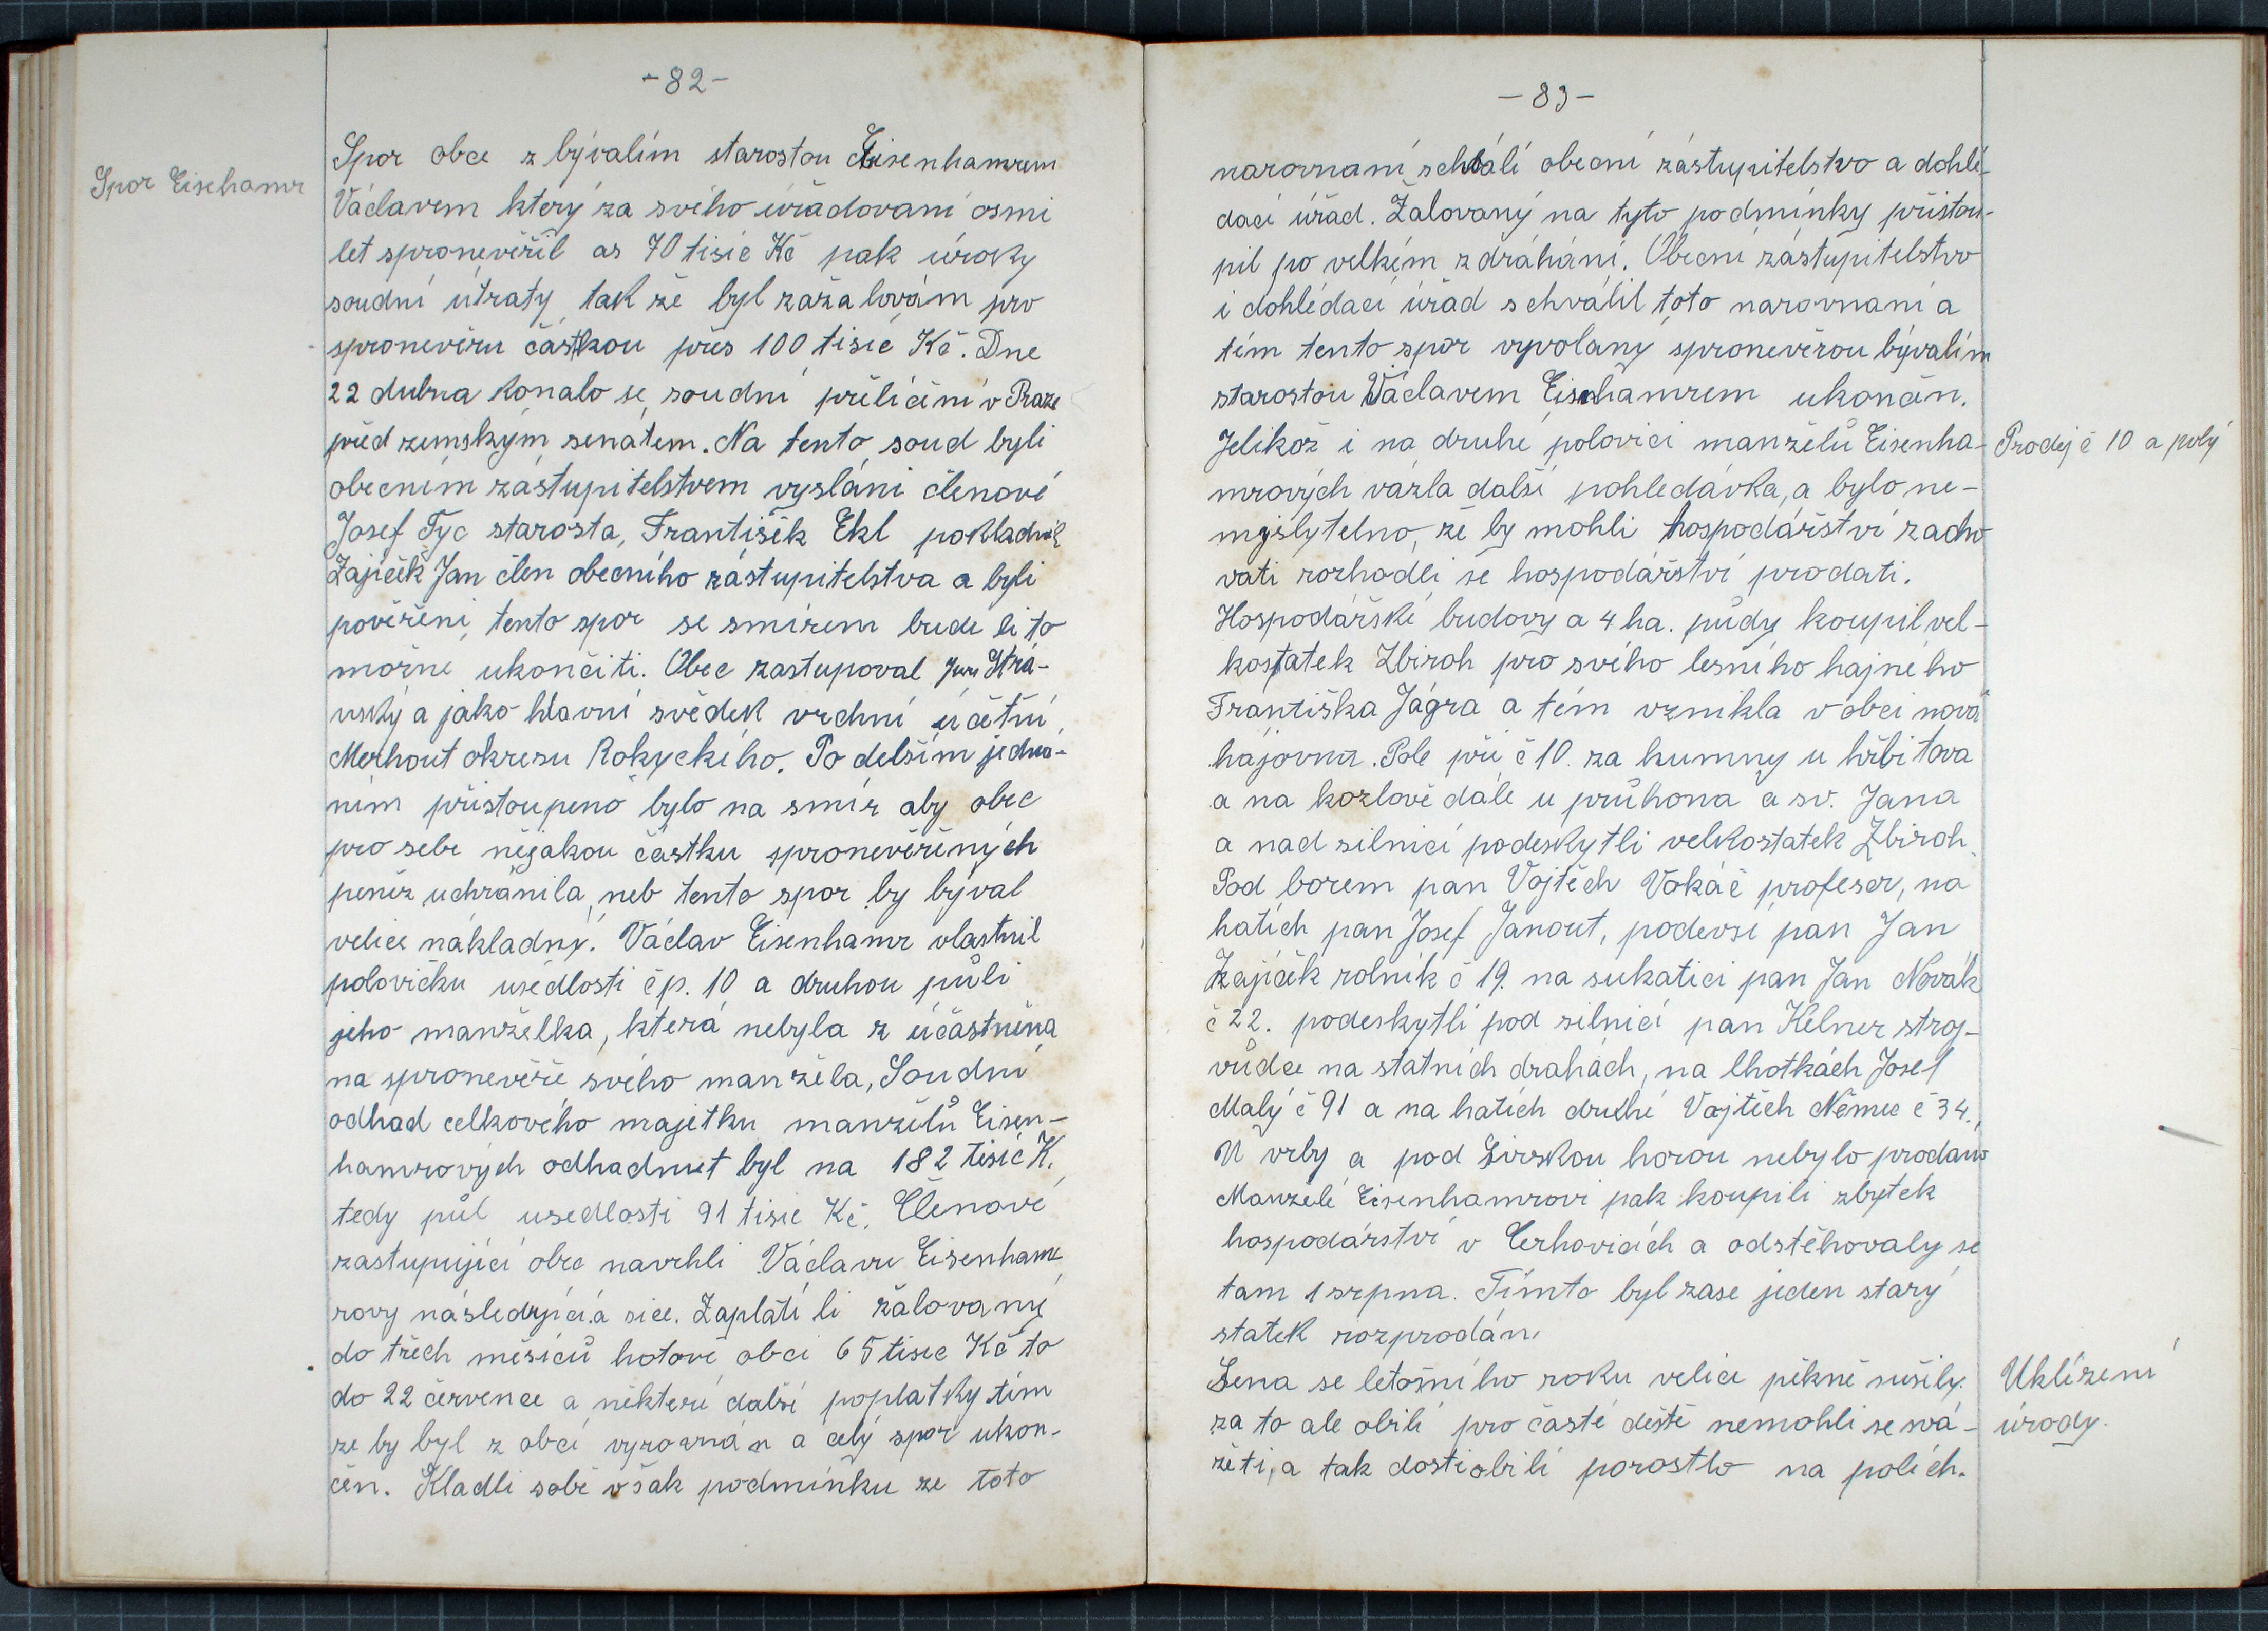 -82-
Spor Eisehamr
Spor obce z bývalím starostou Eisenhamrem
Václavem který za svého úřadovaní osmi
let spronevěřil as 70 tisíc Kč pak úroky
soudní útraty, tak že byl zažalovám pro
spronevěru částkou přes 100 tisíc Kč. Dne
22 dubna konalo se soudní přeličení v Praze
před zemským senátem. Na tento soud byli
obecním zástupitelstvem vysláni členové
Josef Tyc starosta, František Ekl pokladník
Zajíček Jan člen obecního zástupitelstva a byli
pověřeni tento spor se smírem bude li to
možne ukončiti. Obec zastupoval
uský a jako hlavní svědek vrchní účetní
Merhout okresu Rokyckého. Po delším jedna-
ním přistoupeno bylo na smír aby obec
pro sebe nějakou částku spronevěřených
peněz uchránila, neb tento spor by býval
velice nákladný. Václav Eisenhamr vlastnil
polovičku usedlosti čp. 10 a druhou půli
jeho manželka, která nebyla z účastněna
na spronevěře svého manžela, Soudní
odhad celkového majetku manželů Eisen-
hamrových odhadnut byl na 182 tisíc K.
tedy půl usedlosti 91 tisíc Kč. Členové
zastupující obec navrhli Václavu Eisenham
rovy následující.a sice. Zaplatí li žalovaný
do třech měsíců hotově obci 65 tisíc Kč to
do 22 července a některé další poplatky tím
ze by byl z obcí vyrovnán a celý spor ukon-
čen. Kladli sobě však podmínku ze toto
-83-
narovnaní schválí obecní zástupitelstvo a dohlé-
dací úřad. Žalovaný na tyto podmínky přistou-
pil po velkém zdráhání. Obecní zástupitelstvo
i dohlédací úřad schválil toto narovnaní a
tím tento spor vyvolaný spronevěrou bývalím
starostou Václavem Eisnhamrem ukončen.
Jelikož i na druhé polovici manželů Eisenha-
Prodej č 10 a polý
mrových vázla další pohledávka, a bylo ne-
myslytelno, že by mohli hospodářství zacho
vati rozhodli se hospodářství prodati.
Hospodářské budovy a 4 ha. půdy koupil vel-
kostatek Zbiroh pro svého lesního hájného
Františka Jágra a tím vznikla v obci nová
hájovna. Pole při č 10. za humny u hřbitova
a na kozlově dále u průhona a sv. Jana
a nad silnicí podeskytli velkostatek Zbiroh,
Pod borem pan Vojtěch Vokáč profesor, na
hatích pan Josef Janout, podevsí pan Jan
Zajíček rolník č 19. na sukatici pan Jan Novák
č 22. podeskytli pod silnicí pan Kelner stroj-
vůdce na statních drahách, na lhotkách Josef
Malý č 91 a na hatích druhé Vojtěch Němec č 34.,
U vrby a pod Sirskou horou nebylo prodano
Manzelé Eisenhamrovi pak koupili zbytek
hospodářství v Cerhovicích a odstěhovaly se
tam 1 srpna. Tímto byl zase jeden starý
statek rozprodán.
Sena se letošního roku velice pěkně sušily.
Uklízení
za to ale obilí pro časté deště nemohli se svá-
úrody.
žeti, a tak dosti obilí porostlo na polích.